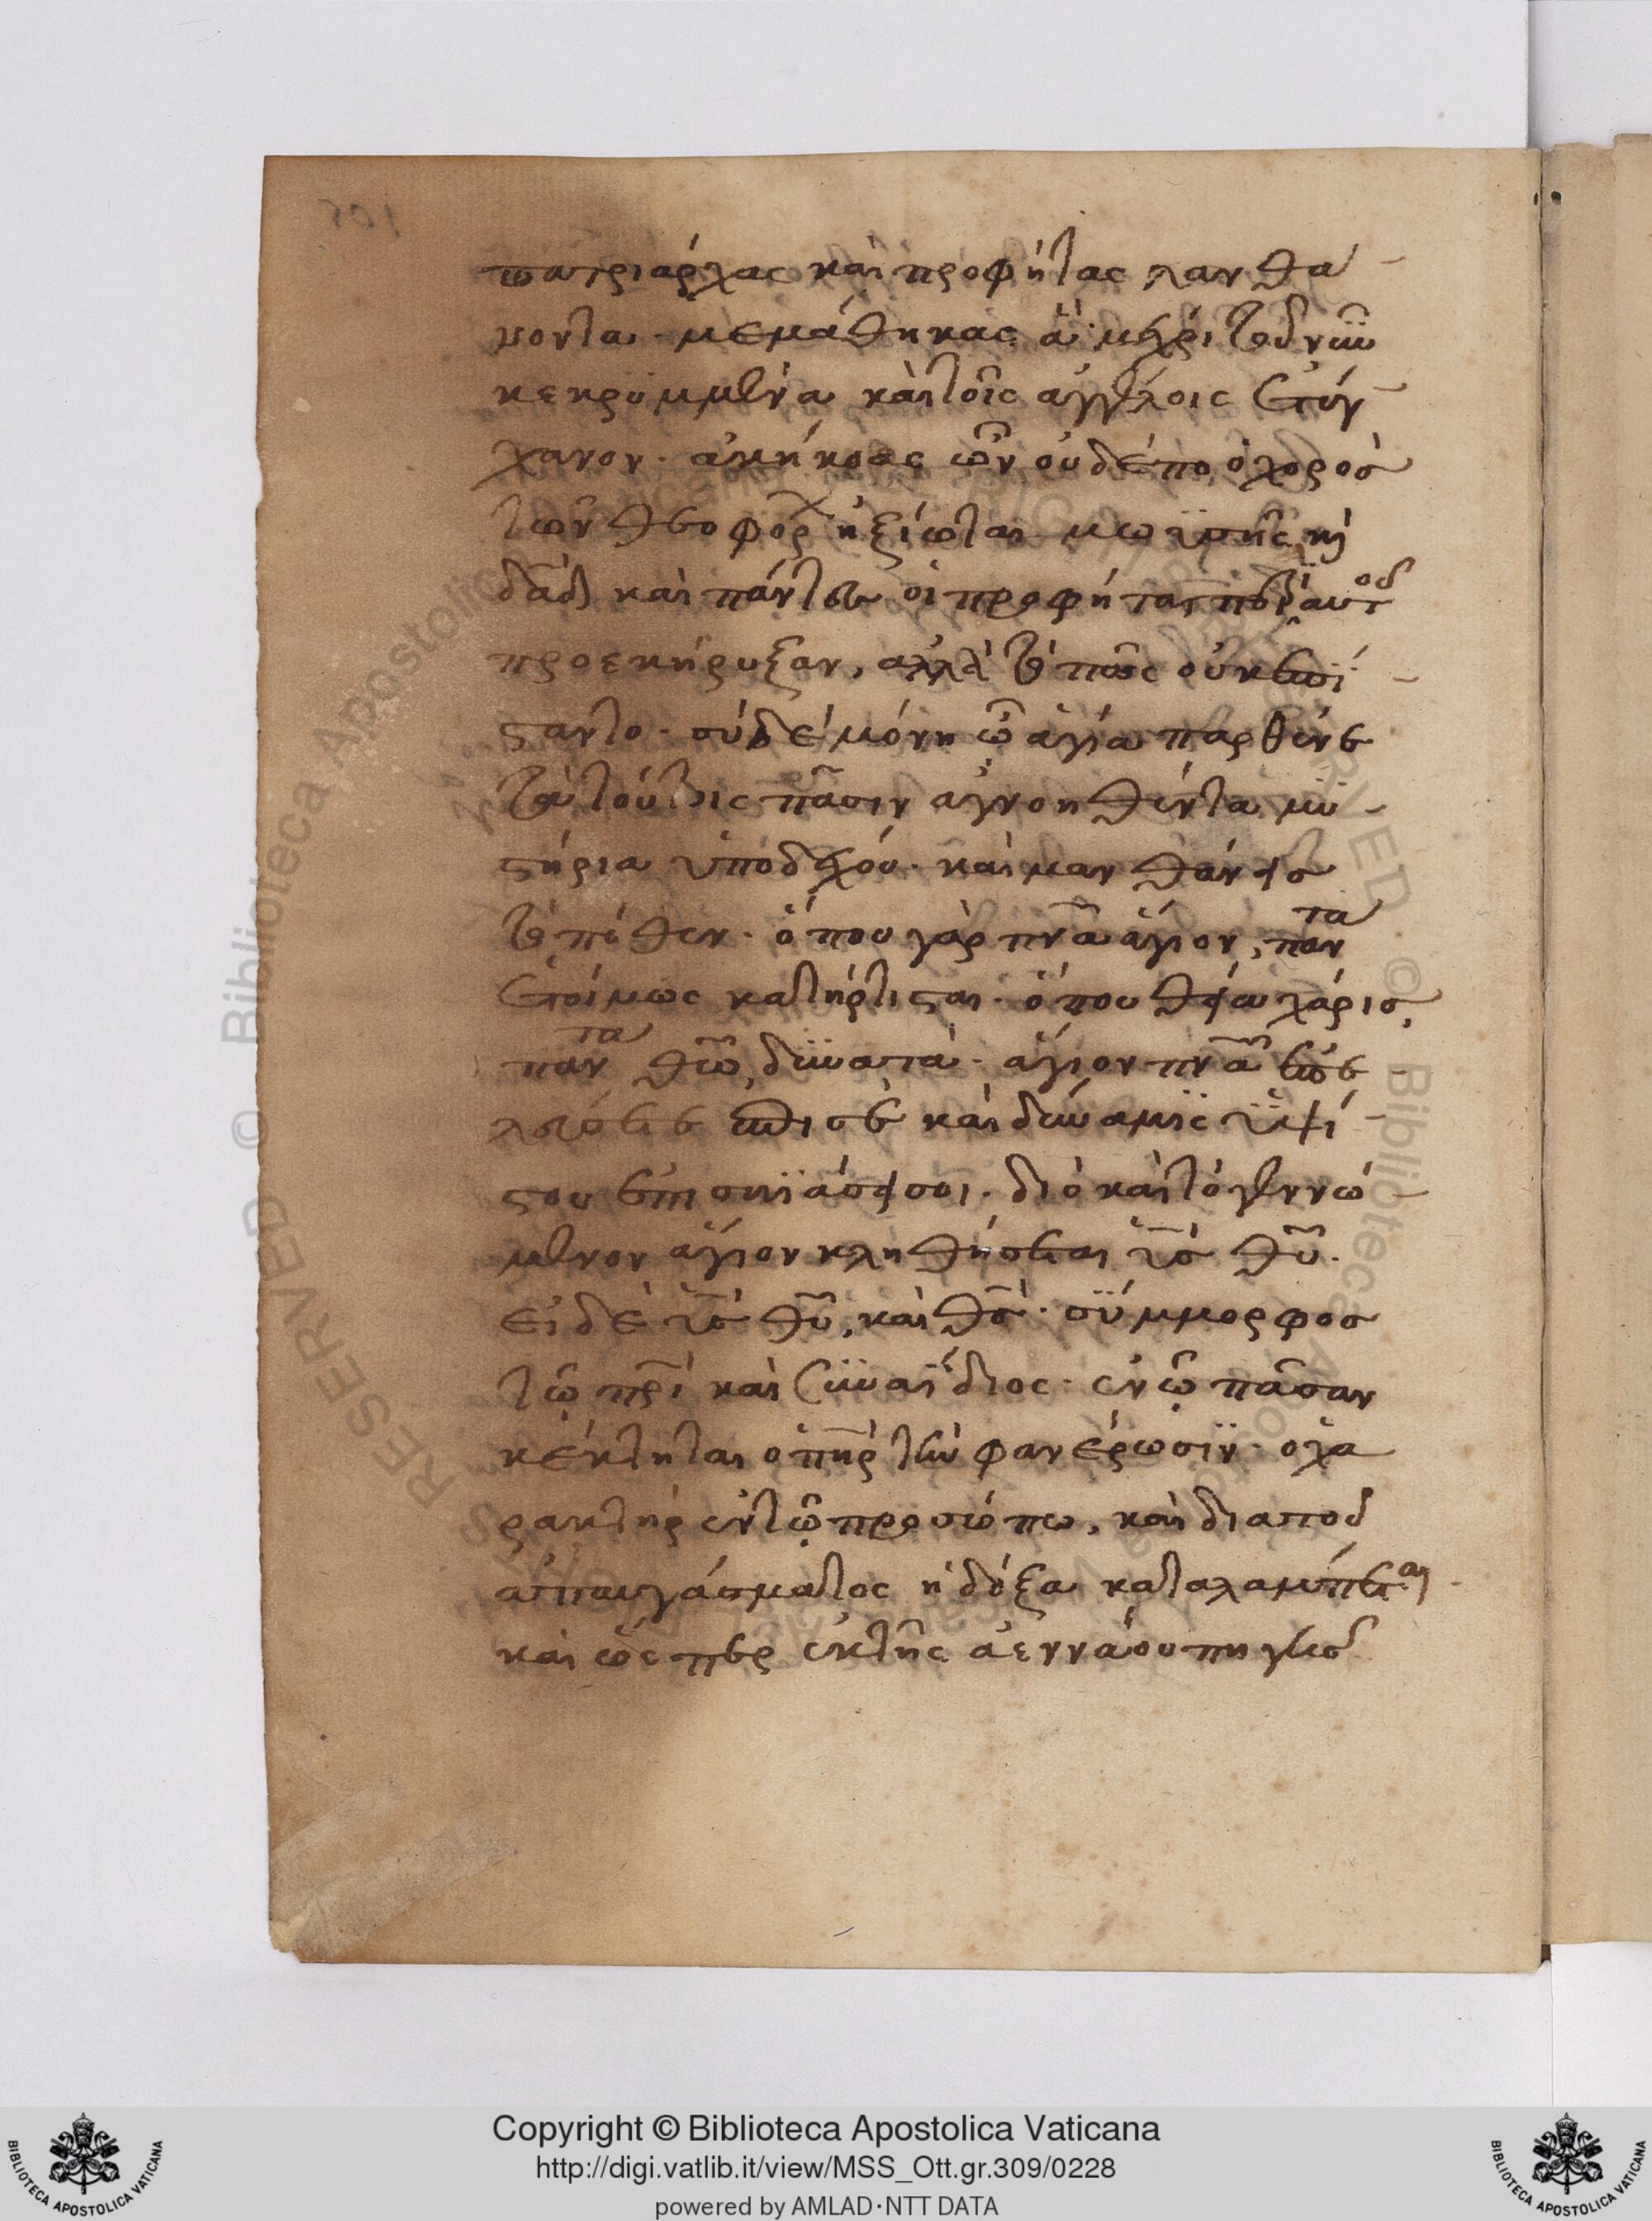 πατριάρχας καὶ προφήτας λανθά
νοντα· μεμάθηκας ἃ μέχρι τοῦ νῦν
κεκρυμμένα καὶ τοῖς ἀγγέλοις ἐτύγ
χανον· ἀκήκοας ὧν οὐδέπο ὁ χορὸς
τῶν θεοφόρ ἠξίωται μωϋσῆς κὶ
δαδ καὶ πάντες οἱ προφῆται περὶ αὐτοῦ
προεκήρυξαν, ἀλλὰ τὸ πῶς οὐκ ἐπί
σταντο· σὺ δὲ μόνη ὦ ἁγία παρθένε
τὰ τούτοις πᾶσιν ἀγνοηθέντα μυ
στήρια ὑποδέχου· καὶ μανθάνεις
τὸ πόθεν· ὅπου γὰρ πνα ἅγιον, πάντα
ἑτοίμως κατήρτισται· ὅπου θεία χάρις,
πάντα θῶ δυνατά· ἅγιον πνα ἐπε
λεύσεται ἐπὶ σὲ καὶ δύναμις ὑψί
στου ἐπισκιάσει σοι· διὸ καὶ τὸ γεννώ
μενον ἅγιον κληθήσεται υς θυ.
εἰ δὲ υς θυ, καὶ θς· σύμμορφος
τῷ πρὶ καὶ συναΐδιος· ἐν ᾧ πᾶσαν
κέκτηται ὁ πηρ τὴν φανέρωσιν· ὁ χα
ρακτὴρ ἐν τῷ προσώπω, καὶ διὰ τοῦ
ἀπαυγάσματος ἡ δόξα καταλάμπεται
καὶ ὥσπερ ἐκ τῆς ἀεννάου πηγῆς
Copyright © Biblioteca Apostolica Vaticana
http://digi.vatlib.it/view/MSS_Ott.gr.309/0228
powered by AMLAD·NTT DATA